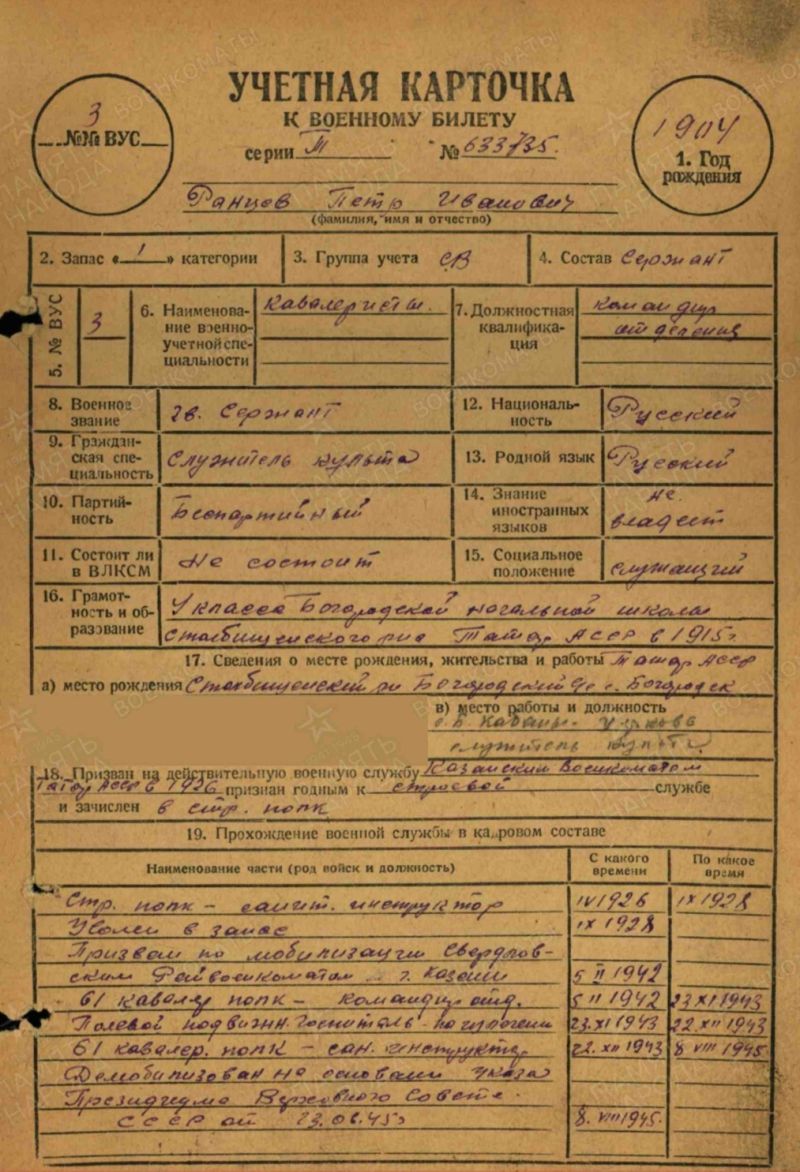 УЧЕТНАЯ КАРТОЧКА
К ВОЕННОМУ БИЛЕТУ
серии Т № 633735.
3
№№ ВУС
1904
1. Год
рождения
Ранцев Петр Иванович
(фамилия, имя и отчество)
2. Запас «1» категории
3. Группа учета СВ
4. Состав Сержант
5. № ВУС 3
6. Наименова-
ние военно-
учетной спе-
циальности
Кавалеристы.
7. Должностная
квалифика-
ция
командир
отделения
8. Военное
звание
Гв. Сержант
12. Националь-
ность
Русский
9. Граждан-
ская спе-
циальность
Служитель культа
13. Родной язык Русский
10. Партий-
ность
Беспартийный
14. Знание
иностранных
языков
не
владеет
11. Состоит ли
в ВЛКСМ
Не состоит
15. Социальное
положение
служащий
16. Грамот-
ность и об-
разование
класса Богородской начальной школы
Столбищенского р-на Татар АССР в 1915г.
17. Сведения о месте рождения, жительства и работы Татар АССР
а) место рождения Столбищенский Богородский с. Богородск
в) место работы и должность
Кабаны. церковь
служитель культа
18. Призван на действительную военную службу Казанским Военкоматом
Татар АССР в 1926 признан годным к строевой службе
и зачислен в стр. полк
19. Прохождение военной службы в кадровом составе
Наименование части (род войск и должность)
С какого
времени
По какое
время
Стр. полк – санит. инструктор IV 1926 IX 1928
Уволен в запас IX 1928
Призван по мобилизации Свердлов-
ским Райвоенкоматом г. Казани 5 II 1942
61 кавалер полк – командир отд. 5 II 1942 23 XI 1943
Полевой подвижн. госпиталь - по излечении 23. XI 1943 22. XII 1943
61 кавалер. полк – сан. инструктор 22. XII 1943 8 VIII 1945
Демобилизован на основании Указа
Президиума Верховного Совета
СССР от 23.06.45г 8. VIII 1945.